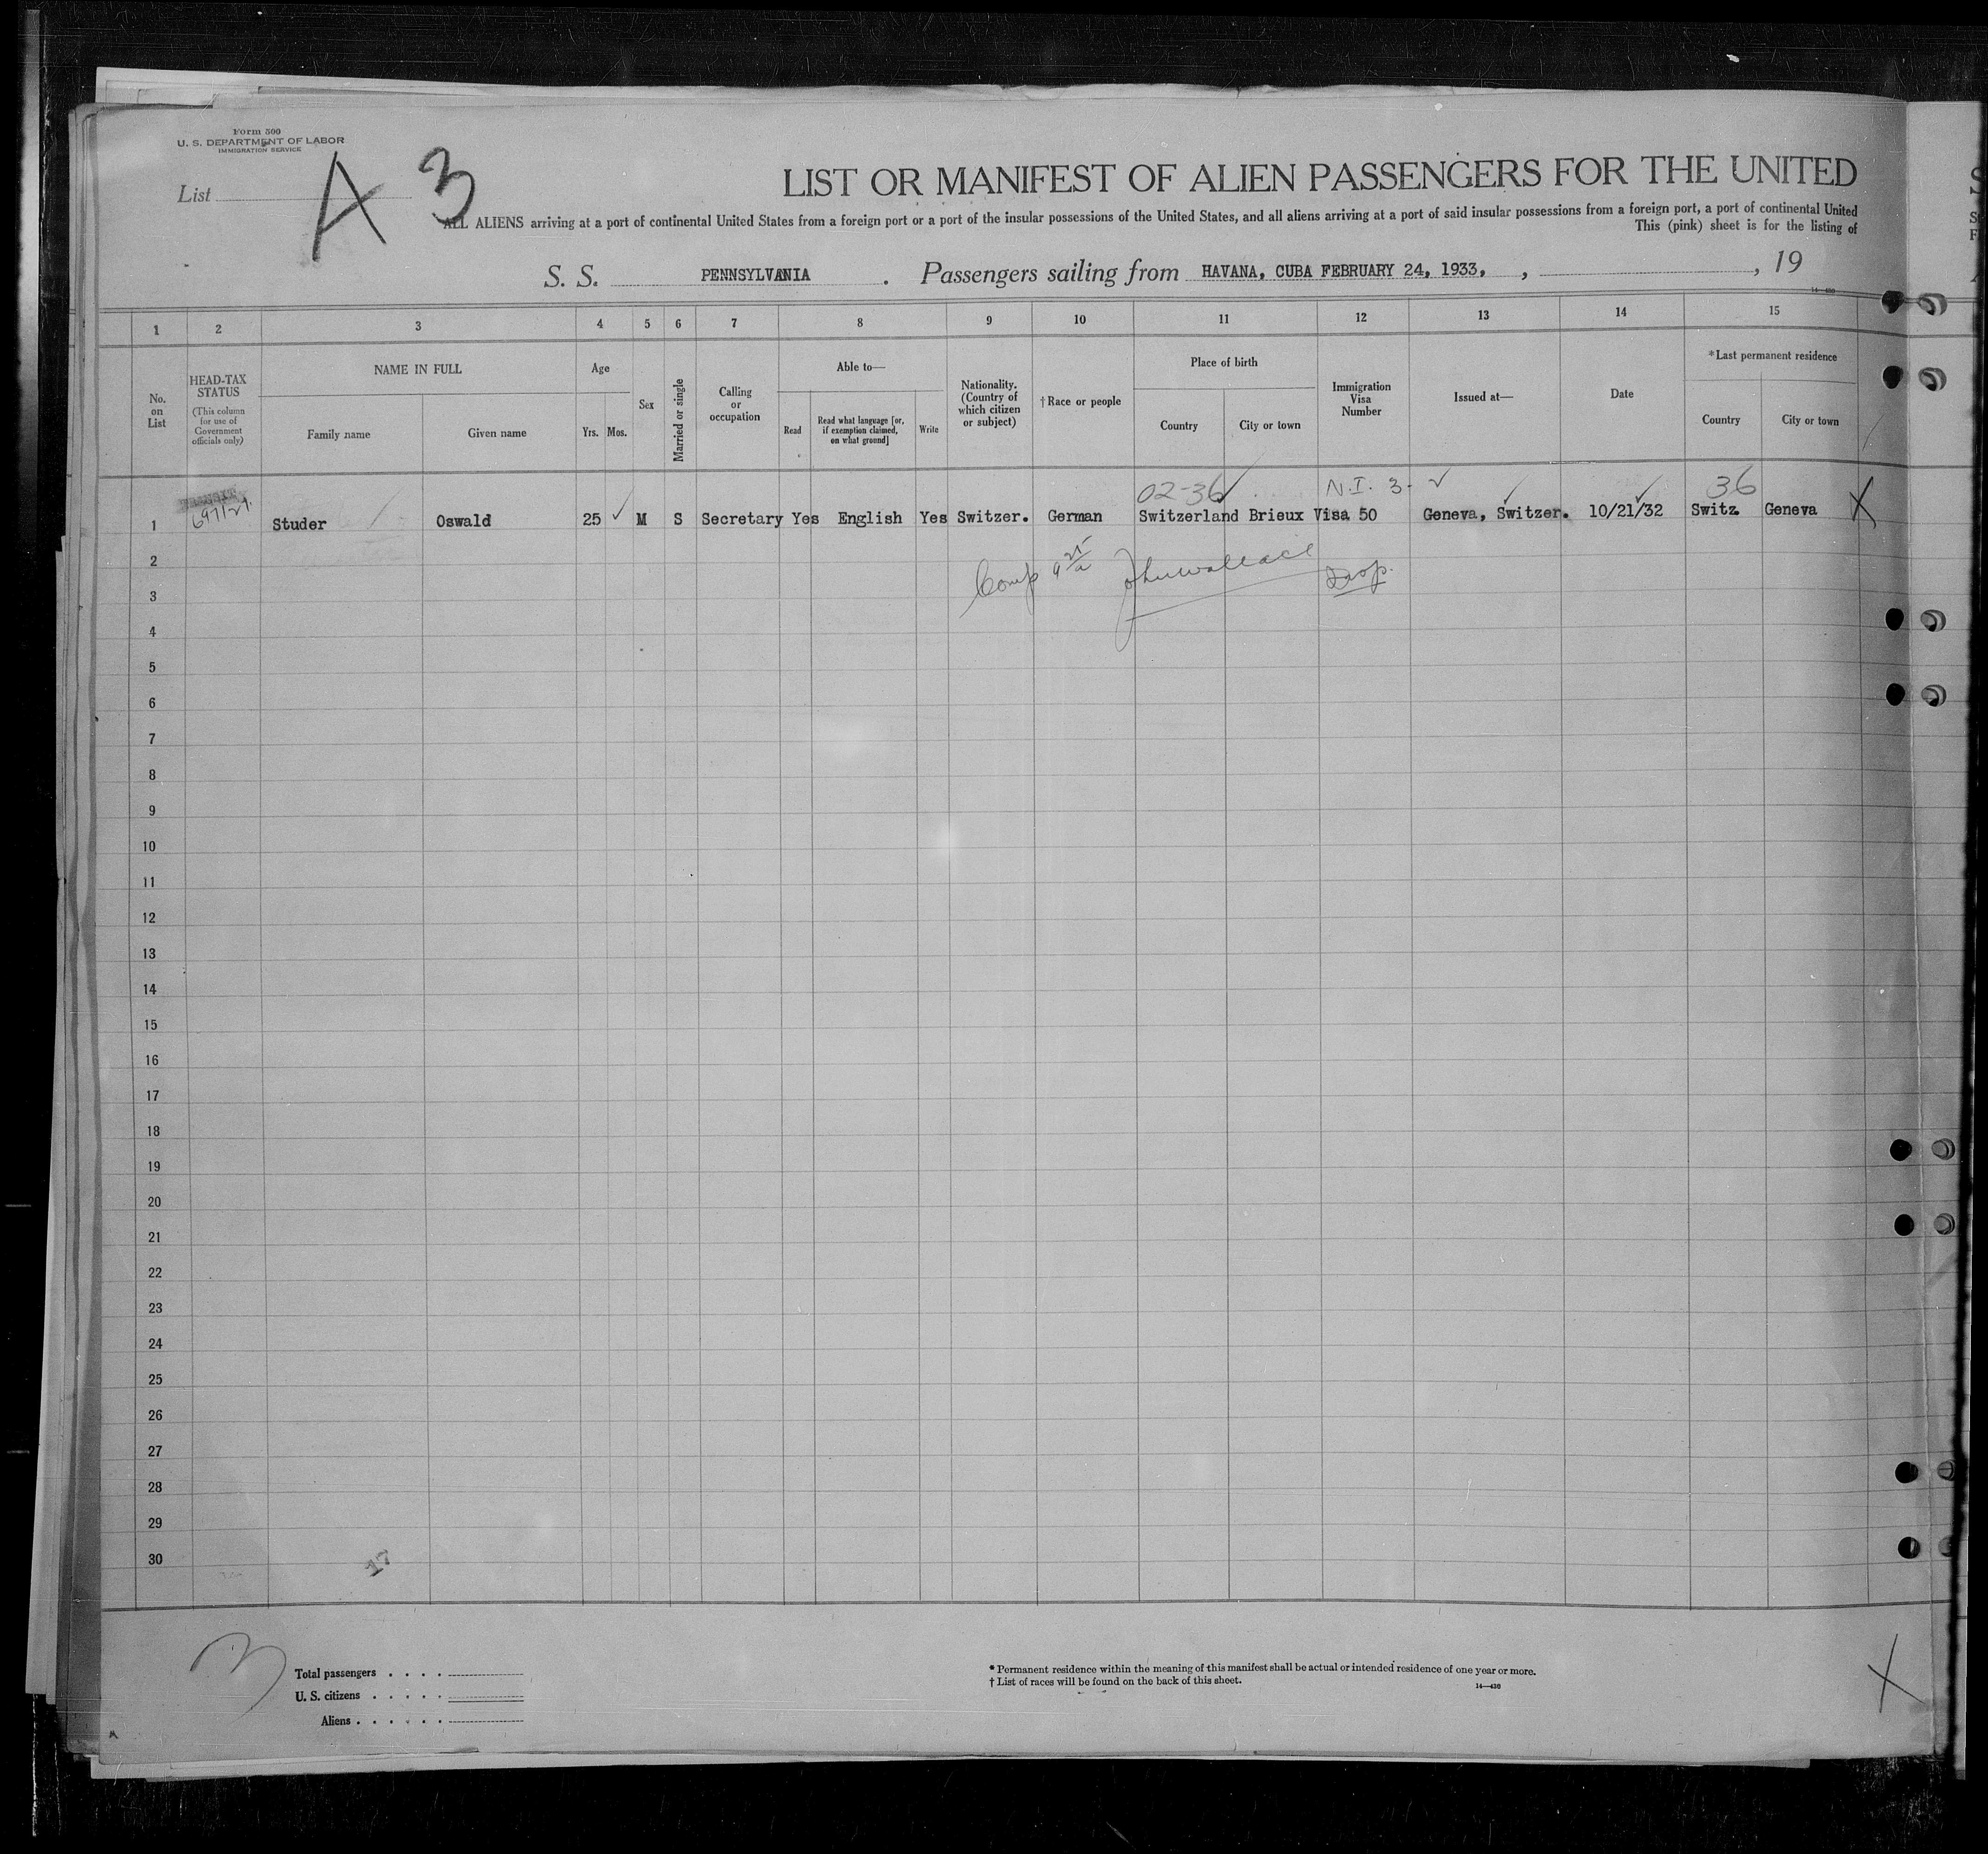 Form 500
U. S. DEPARTMENT OF LABOR
IMMIGRATION SERVICE
List
A 3
LIST OR MANIFEST OF ALIEN PASSENGERS FOR THE UNITED
ALL ALIENS arriving at a port of continental United States from a foreign port or a port of the insular possessions of the United States, and all aliens arriving at a port of said insular possessions from a foreign port, a port of continental United
This (pink) sheet is for the listing of
S. S. PENNSYLVANIA . Passengers sailing from HAVANA, CUBA FEBRUARY 24, 1933, , , 19
14—430
1 2 3 4 5 6 7 8 9 10 11 12 13 14 15
No. on List
HEAD-TAX STATUS (This column for use of Government officials only)
NAME IN FULL
Family name Given name
Age
Yrs. Mos.
Sex
Married or single
Calling or occupation
Able to—
Read Read what language [or, if exemption claimed, on what ground] Write
Nationality. (Country of which citizen or subject)
† Race or people
Place of birth
Country City or town
Immigration Visa Number
Issued at—
Date
*Last permanent residence
Country City or town
TRANSIT 02-36 ✓ N.I. 3- ✓ 36
1 Studer Oswald 25 ✓ M S Secretary Yes English Yes Switzer. German Switzerland Brieux Visa 50 Geneva, Switzer. 10/21/32 Switz Geneva X
2
John Wallace
Insp.
3
4
5
6
7
8
9
10
11
12
13
14
15
16
17
18
19
20
21
22
23
24
25
26
27
28
29
30
17
3
Total passengers . . . .
U. S. citizens . . . . .
Aliens . . . . . .
* Permanent residence within the meaning of this manifest shall be actual or intended residence of one year or more.
† List of races will be found on the back of this sheet.
14—430
X